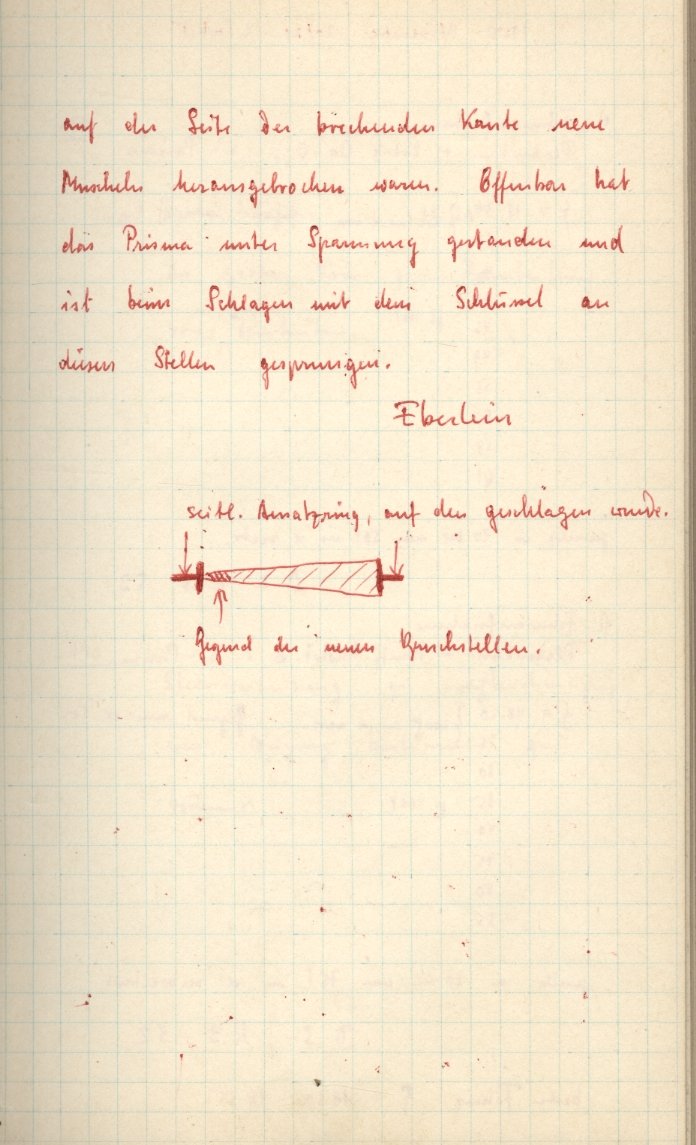 auf der Seite der brechenden Kante neue
Muscheln herausgebrochen waren. Offenbar hat
das Prisma unter Spannung gestanden und
ist beim Schlagen mit dem Schlüssel an
diesen Stellen gesprungen.
Eberlein
seitl. Ansatzring, auf den geschlagen wurde.
Gegend der neuen Bruchstellen.